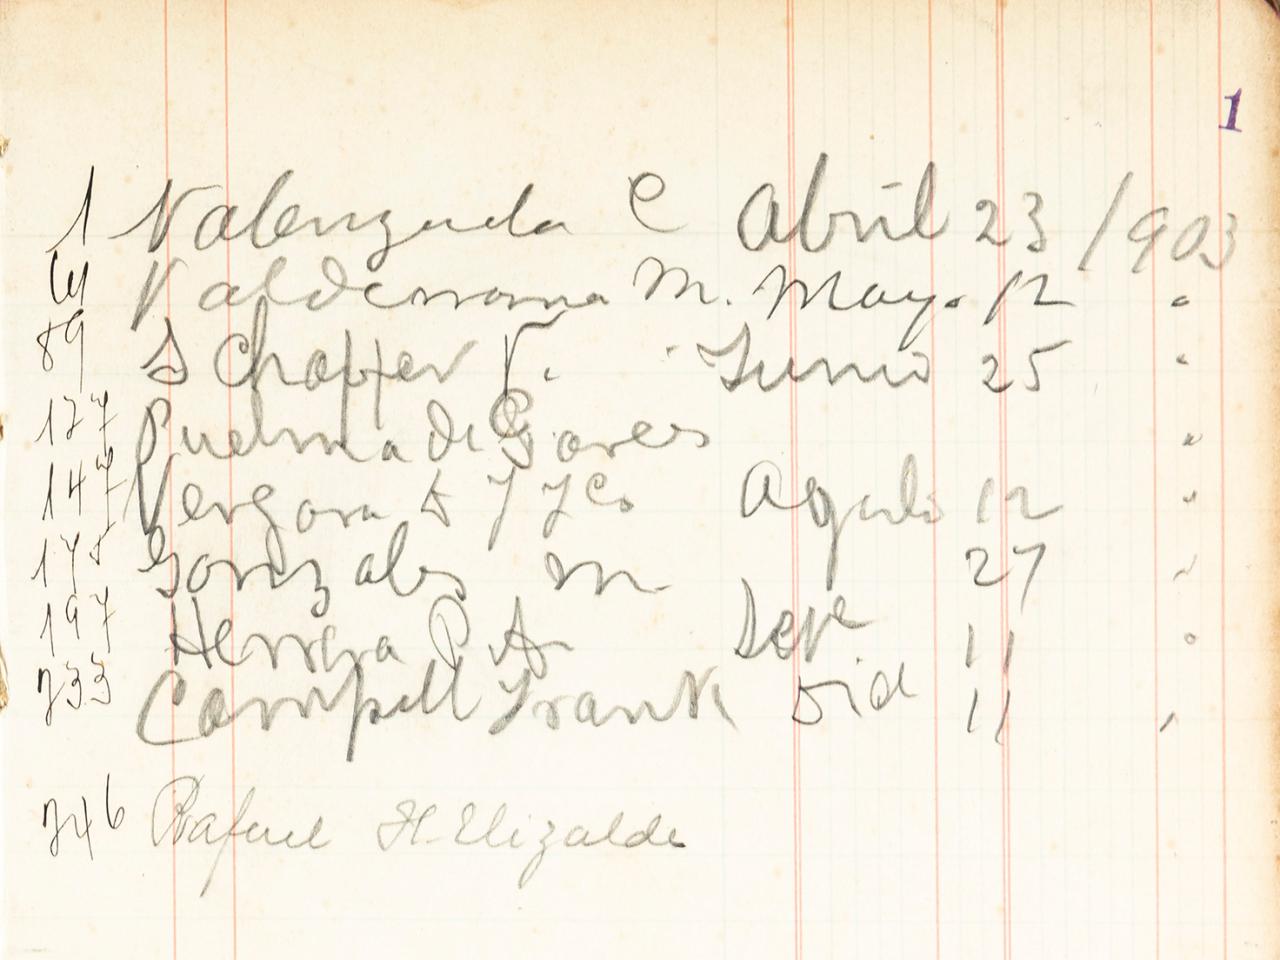 1
1 Valenzuela C Abril 23 /903
Valderrama M. Mayo 12 "
89 Schaffer F. Junio 25 "
127 Puelma de Garces "
147 Vergara & Co Agosto 12 "
Gonzalez M 27 "
197 Herrera P. A. 11 "
233 Campell Frank Dic 11 "
246 Rafael H. Elizalde